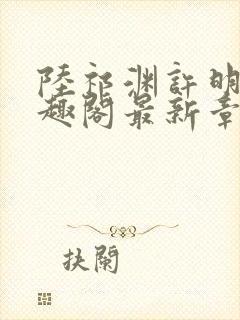 陸祁渊許明
趣閣最新章
抉闌